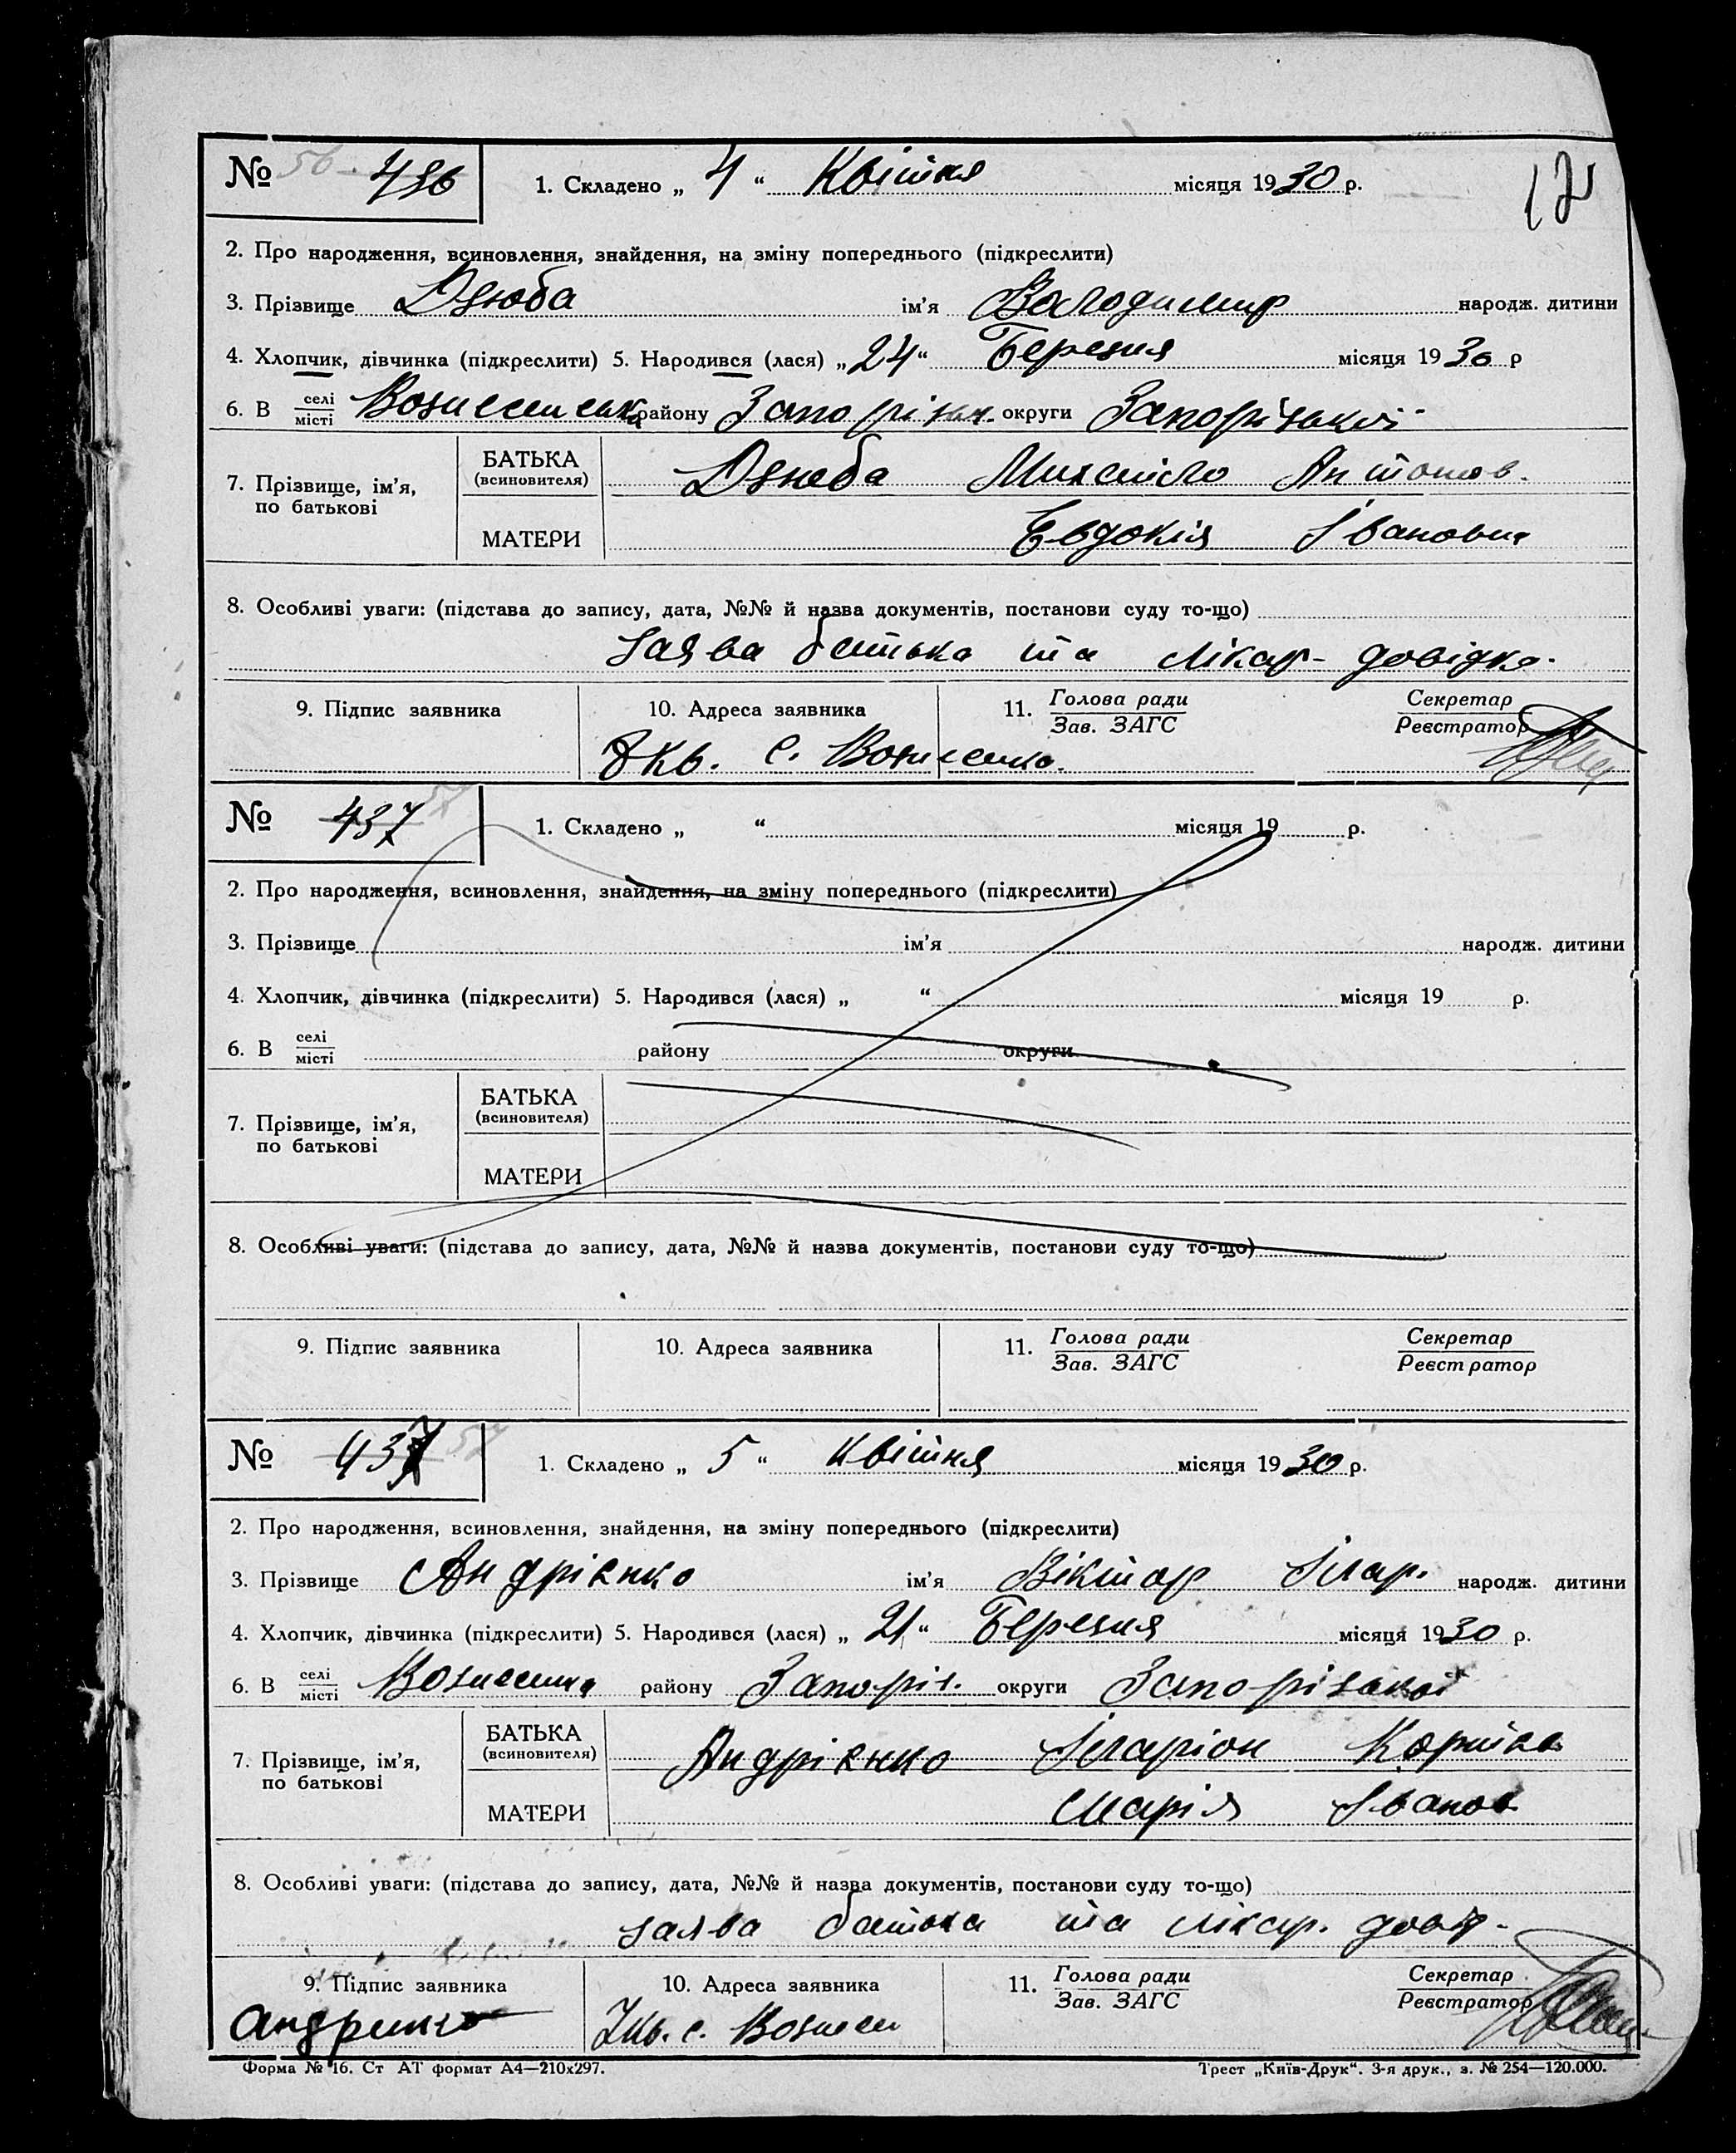 № 56. 436 1. Складено „ 4 “ Квітня місяця 1930 р.
2. Про народження, всиновлення, знайдення, на зміну попереднього (підкреслити)
3. Прізвище Дзюба ім’я Володимир народж. дитини
4. Хлопчик, дівчинка (підкреслити) 5. Народився (лася) „ 24 “ Березня місяця 1930 р
6. В селі/місті Вознесенська району Запорізьк. округи Запорізької
7. Прізвище, ім’я, по батькові
БАТЬКА (всиновителя) Дзюба Михайло Антонов.
МАТЕРИ Евдокія Івановна
8. Особливі уваги: (підстава до запису, дата, №№ й назва документів, постанови суду то-що)
заява батька та лікар- довідка.
9. Підпис заявника 10. Адреса заявника 11. Голова ради/Зав. ЗАГС Секретар/Реєстратор
с. Вознесенка.
№ 437 57 1. Складено „ “ місяця 19 р.
2. Про народження, всиновлення, знайдення, на зміну попереднього (підкреслити)
3. Прізвище ім’я народж. дитини
4. Хлопчик, дівчинка (підкреслити) 5. Народився (лася) „ “ місяця 19 р.
6. В селі/місті району округи
7. Прізвище, ім’я, по батькові
БАТЬКА (всиновителя)
МАТЕРИ
8. Особливі уваги: (підстава до запису, дата, №№ й назва документів, постанови суду то-що)
9. Підпис заявника 10. Адреса заявника 11. Голова ради/Зав. ЗАГС Секретар/Реєстратор
№ 437 57 1. Складено „ 5 “ Квітня місяця 1930 р.
2. Про народження, всиновлення, знайдення, на зміну попереднього (підкреслити)
3. Прізвище Андрієнко ім’я Віктор Ілар. народж. дитини
4. Хлопчик, дівчинка (підкреслити) 5. Народився (лася) „ 21 “ Березня місяця 1930 р.
6. В селі/місті Вознесенка району Запоріз. округи Запорізької
7. Прізвище, ім’я, по батькові
БАТЬКА (всиновителя) Андрієнко Іларіон
МАТЕРИ Марія Іванов
8. Особливі уваги: (підстава до запису, дата, №№ й назва документів, постанови суду то-що)
заява батька та лікар. довід.
9. Підпис заявника 10. Адреса заявника 11. Голова ради/Зав. ЗАГС Секретар/Реєстратор
с. Вознесен
Форма № 16. Ст АТ формат А4—210х297. Трест „Київ-Друк“. 3-я друк., з. № 254—120.000.